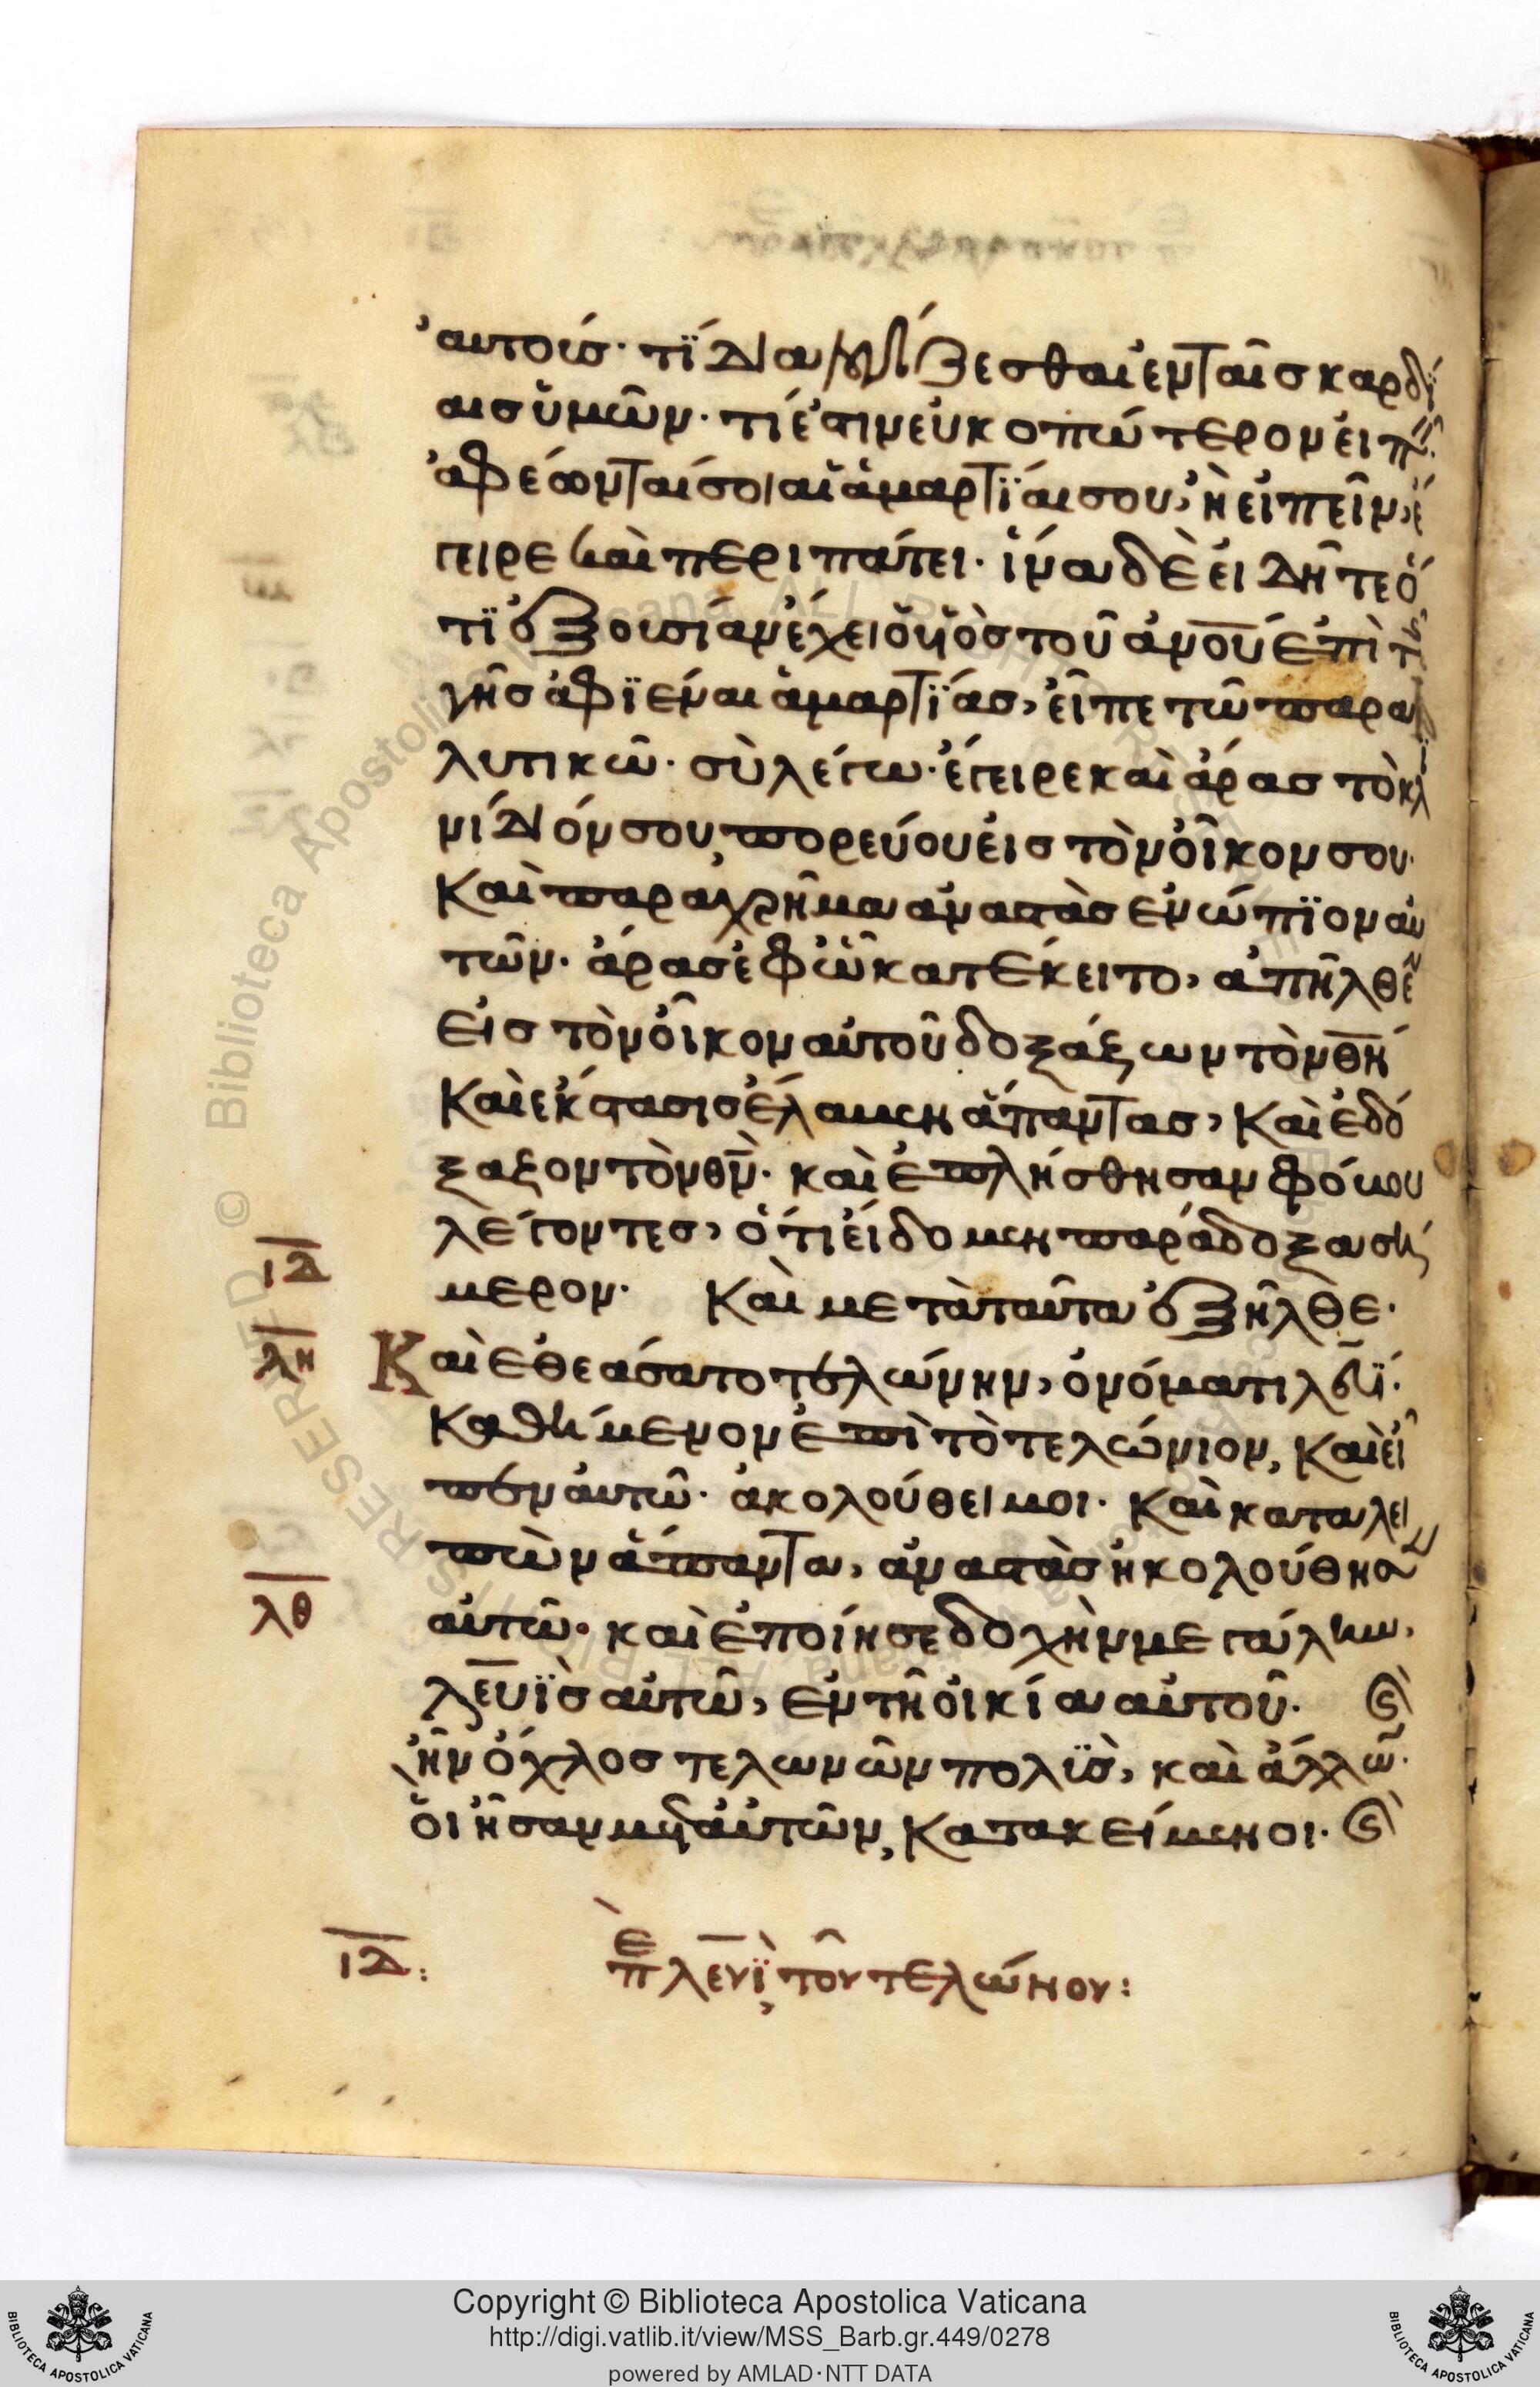 αυτοίσ· τί διαλογίζεσθαι ἐν ταῖσ καρδί
αισ ὑμῶν· τί ἐστιν εὐκοπώτερον εἰπεῖν·
ἀφέωνταί σοι αἱ ἁμαρτΐαι σου, ἢ εἰπεῖν, ἔ
γειρε καὶ περιπάτει· ἵνα δὲ εἰδῆτε ὅ
τϊ ἐξουσίαν ἔχει ὁ υἱὸσ τοῦ α̅ν̅ο̅υ̅ ἐπὶ τῆσ
γῆσ ἀφϊέναι ἁμαρτΐασ, εἶπε τῶ παρα
λυτικῶ· σὺ λέγω· ἔγειρε καὶ ἄρασ τὸ κλι
νίδιόν σου, πορεύου εἰσ τὸν οἶκον σου·
Καὶ παραχρῆμα ἀναστὰσ ἐνώπϊον αὐ
τῶν· ἄρασ ἐφ ὧ κατέκειτο, ἀπῆλθεν
εἰσ τὸν οἶκον αὐτοῦ δοξάζων τὸν θ̅ν̅
Καὶ ἔκστασισ ἔλαβεν ἅπαντασ, Καὶ ἐδό
ξαζον τὸν θ̅ν̅· καὶ ἐπλήσθησαν φόβου
λέγοντεσ, ὅτι εἴδομεν παράδοξα σή
ι̅δ̅
μερον· Καὶ μετὰ ταῦτα ἐξῆλθε·
λ̅η̅
Καὶ ἐθεάσατο τελώνην, ὀνόματι λευΐ·
Καθήμενον ἐπὶ τὸ τελώνιον, Καὶ εἶ
πεν αὐτῶ· ἀκολούθει μοι· Καὶ καταλει
πὼν ἅπαντα, ἀναστὰσ ἠκολούθησεν
λ̅θ̅
αὐτῶ· καὶ ἐποίησε δοχὴν μεγάλην,
λευϊσ αὐτῶ, ἐν τῆ οἰκία αὐτοῦ· Καὶ
ἦν ὄχλοσ τελωνῶν πολϋσ, καὶ ἄλλων·
οἳ ἦσαν μετ αὐτῶν, Κατακείμενοι· Καὶ
ι̅δ̅:
πε λευῒ, τοῦ τελώνου:
Copyright © Biblioteca Apostolica Vaticana
http://digi.vatlib.it/view/MSS_Barb.gr.449/0278
powered by AMLAD·NTT DATA
BIBLIOTECA APOSTOLICA VATICANA
BIBLIOTECA APOSTOLICA VATICANA